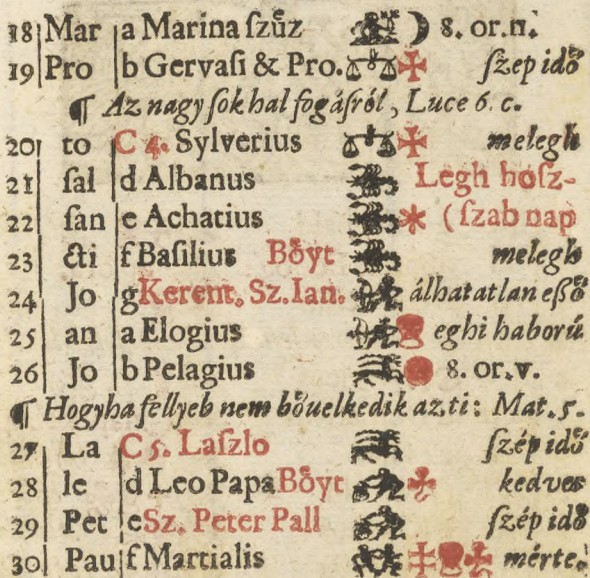 18 Mar a Marina ſzűz ☽ 8. or. n.
19 Pro b Gervaſi & Pro. ſzep idő
¶ Az nagy ſok hal fogáſról, Luce 6. c.
20 to C 4. Sylverius melegh
21 ſal d Albanus Legh hoſz-
22 ſan e Achatius (ſzab nap
23 &ti f Baſilius Bőyt melegh
24 Jo g Kereſnt. Sz. Ian. álhatatlan eßő
25 an a Elogius eghi haború
26 Jo b Pelagius 8. or. v.
¶ Hogyha fellyeb nem bőuelkedik az. ti: Mat. 5.
27 La C 5. Laſzlo ſzép idő
28 le d Leo Papa Bőyt kedves
29 Pet e Sz. Peter Pall ſzép idő
30 Pau f Martialis mérte.